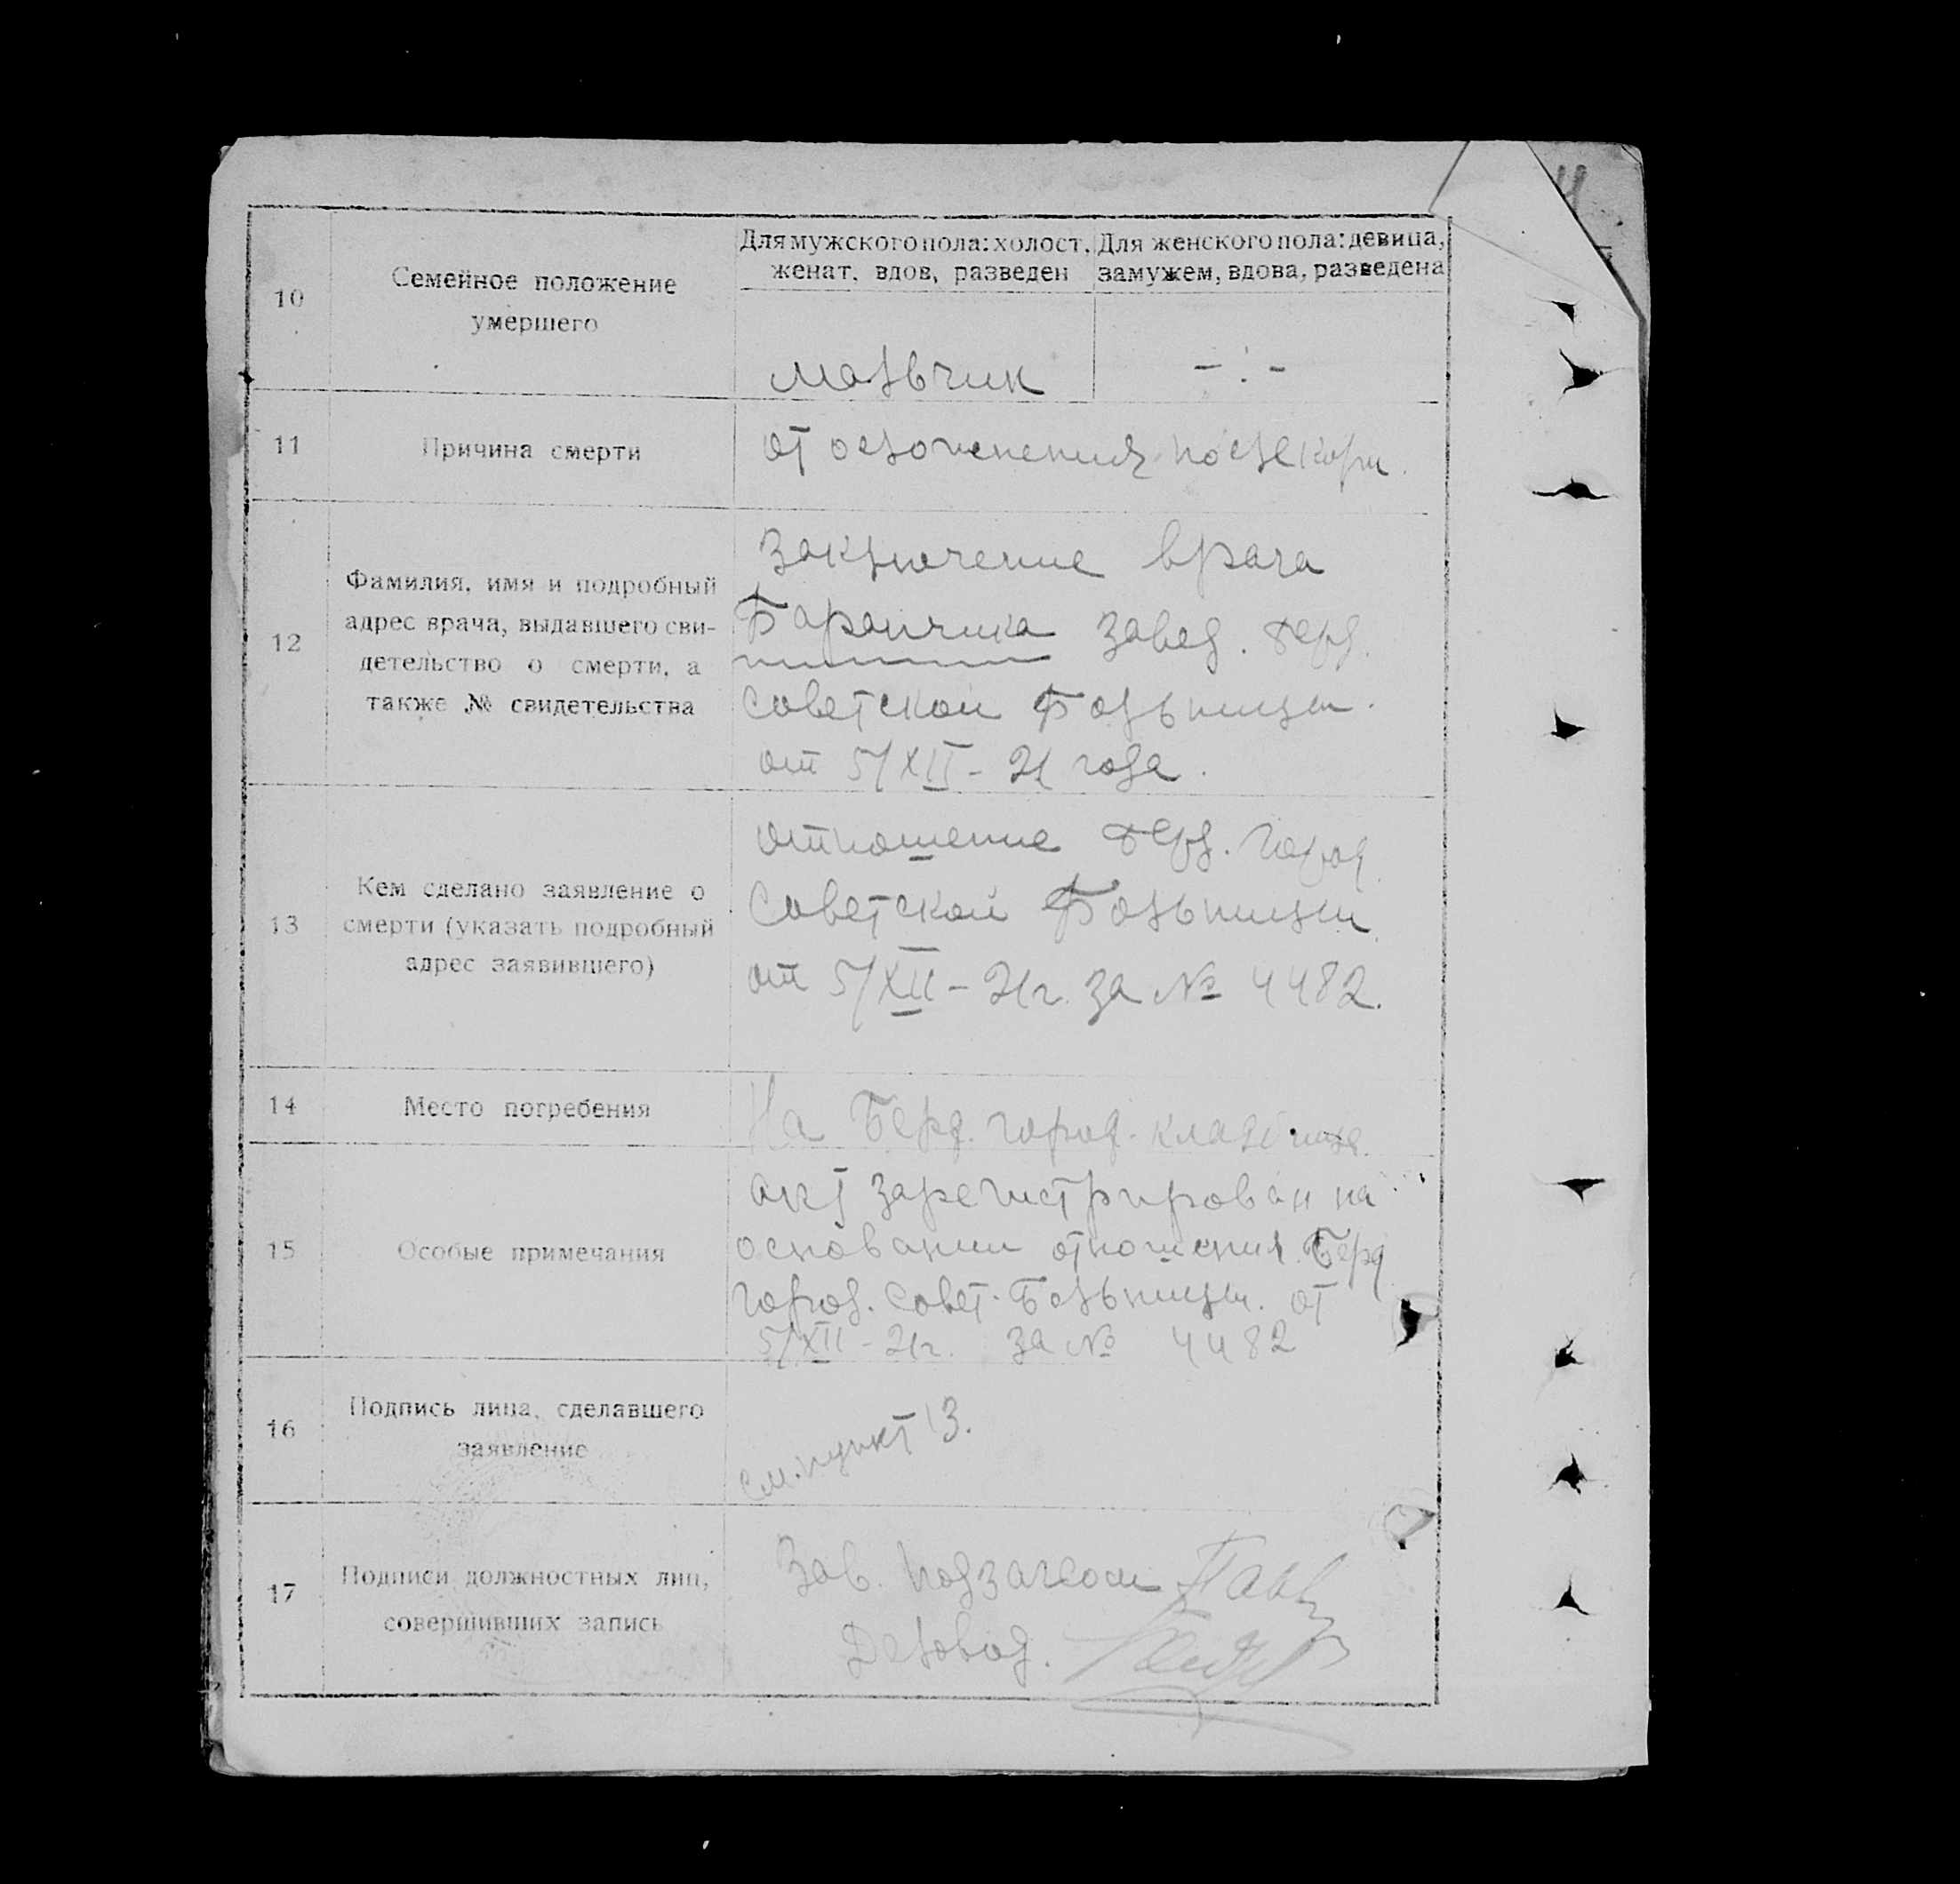 10
Семейное положение
умершего
Для мужского пола: холост,
женат, вдов, разведен
Для женского пола: девица,
замужем, вдова, разведена
мальчик
- : -
11
Причина смерти
от осложнения после кори.
12
Фамилия, имя и подробный
адрес врача, выдавшего сви-
детельство о смерти, а
также № свидетельства
Заключение врача
Баранчика Завед. Берд.
Советской Больницы.
от 5/XII - 21 года.
13
Кем сделано заявление о
смерти (указать подробный
адрес заявившего)
отношение Берд. Город.
Советской Больницы
от 5/XII - 21 г. за № 4482.
14
Место погребения
На Берд. город. кладбище.
15
Особые примечания
акт зарегистрирован на
основании отношения Берд
город. Совет. Больницы. от
5/XII - 21 г. за № 4482
16
Подпись лица, сделавшего
заявление
см. пункт 13.
17
Подписи должностных лиц,
совершивших запись
Зав. подзагсом
Деловод.